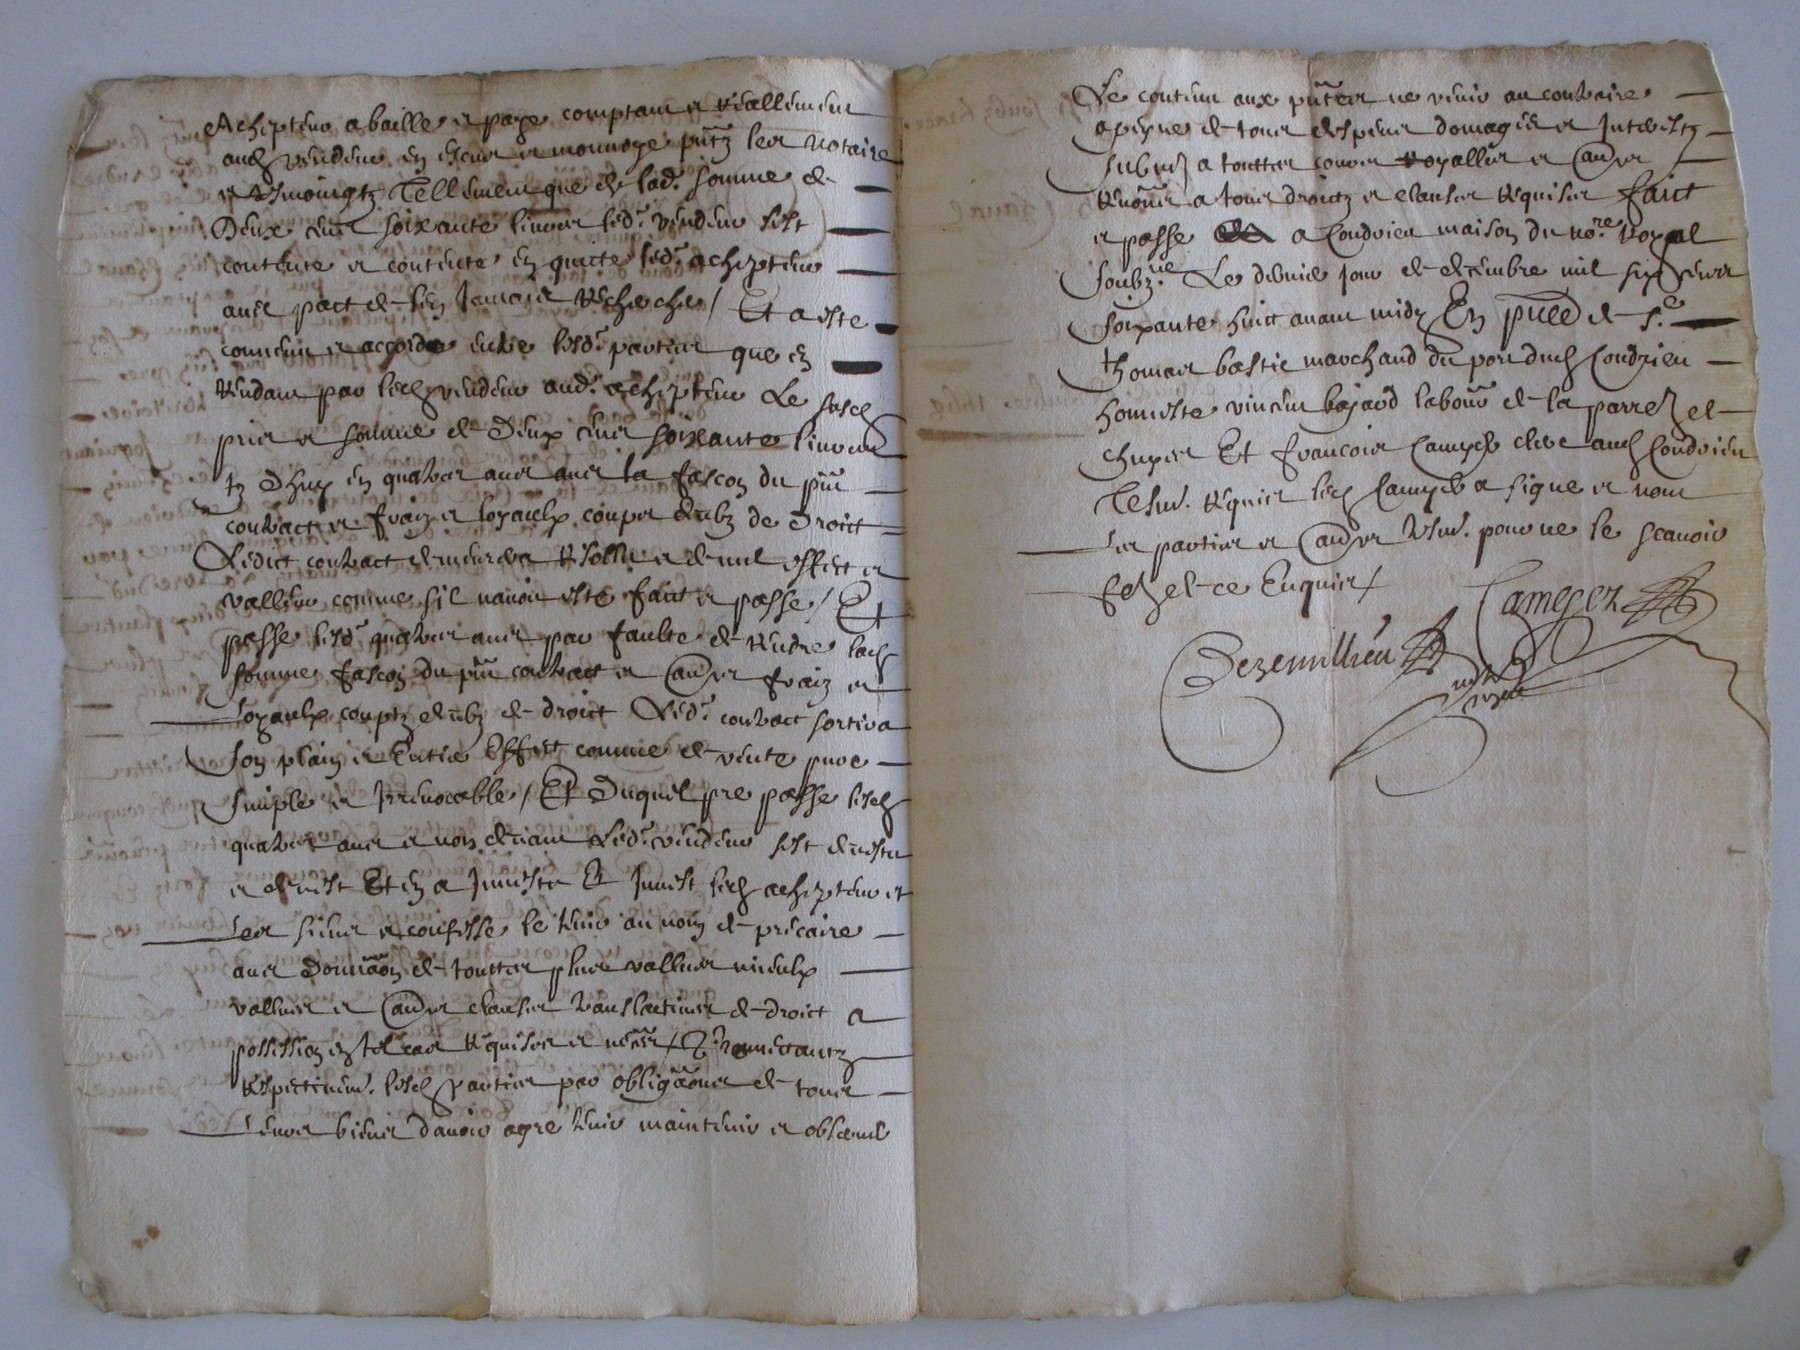 Achepteur a baille et paye comptant et reallement
aud vendeur en escus et monnoye pntz les notaire
et tesmoingtz tellement que de lad. somme de
Deux cens soixante livres led. vendeur sest
contente et contente en quicte led. achepteur
avec pact de nen jamais recherche / Et a este
convenu et accorde entre lesd. parties que en
rendant par led vendeur aud. achepteur Le susd
pris et somme de Deux cens soixante livres
en quatre ans avec la fasson du pnt
contract et fraiz et loyaulx coupz deubz de Droict
Ledict contract demeurera resollu et de nul effect et
valleur comme sil navoit este faict et passe / Et
passe lesd. quatre ans par faulte de rendre lad
somme fasson du pnt contract et autres fraiz et
loyaulx couptz deubz de droict Led. contract sortira
son plain et Entier Effect comme de vente pure
simple et Irrevocable / Et Duquel pre passe lesd
quatre ans et non devant Led. vendeur sest devestu
et devest Et en a Investu Et Invest led achepteur et
les siens et confesse le tenir au nom de precaire
avec Donnaon de touttes plus vallues mieulx
vallues et autres clauses translactives de droict et
possession en tel cas requises et necres / Promettantz
respectivemt. lesd parties par obligaons de tous
leurs biens d'avoir agre tenir maintenir et observer
Le contenu aux pntes ne venir au contraire
a peyne de tous despens domages et Interestz
submis a touttes cours royalles et autres
renonce a tous droictz et clauses requises faict
et passe a Condrieu maison du nore royal
soubzne. Le dernier jour de decembre mil six cens
soixante huict avant midy En pnce de sr.
thomas bastie marchand du port dud Condrieu
honneste vincent bajard labour de la parre de
chuyes Et francois Cameyer clerc aud Condrieu
Tesm. requis led Cameyer a signe et non
les parties et autre tesm. pour ne le scavoir
de ce Enquis /
Camegez
Bezemillieu